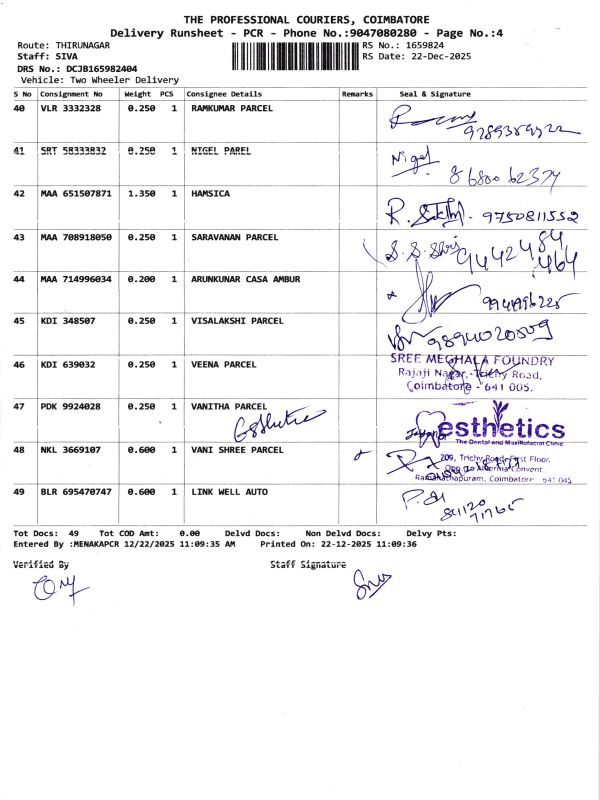 THE PROFESSIONAL COURIERS, COIMBATORE
Delivery Runsheet - PCR - Phone No.:9047080280 - Page No.:4
Route: THIRUNAGAR RS No.: 1659824
Staff: SIVA RS Date: 22-Dec-2025
DRS No.: DCJB165982404
Vehicle: Two Wheeler Delivery
S No Consignment No Weight PCS Consignee Details Remarks Seal & Signature
40 VLR 3332328 0.250 1 RAMKUMAR PARCEL
41 SRT 58333832 0.250 1 NIGEL PAREL Nigel
86800 62374
42 MAA 651507871 1.350 1 HAMSICA
9750811552
43 MAA 708918050 0.250 1 SARAVANAN PARCEL
9442484
464
44 MAA 714996034 0.200 1 ARUNKUNAR CASA AMBUR
45 KDI 348507 0.250 1 VISALAKSHI PARCEL
46 KDI 639032 0.250 1 VEENA PARCEL
SREE MEGHALA FOUNDRY
Rajaji Nagar, Trichy Road,
Coimbatore - 641 005.
47 PDK 9924028 0.250 1 VANITHA PARCEL
esthetics
The Dental and Maxillofacial Clinic
48 NKL 3669107 0.600 1 VANI SHREE PARCEL
209, Trichy Road, First Floor,
Convent,
Ramanathapuram, Coimbatore 641 045
49 BLR 695470747 0.600 1 LINK WELL AUTO
Tot Docs: 49 Tot COD Amt: 0.00 Delvd Docs: Non Delvd Docs: Delvy Pts:
Entered By :MENAKAPCR 12/22/2025 11:09:35 AM Printed On: 22-12-2025 11:09:36
Verified By Staff Signature